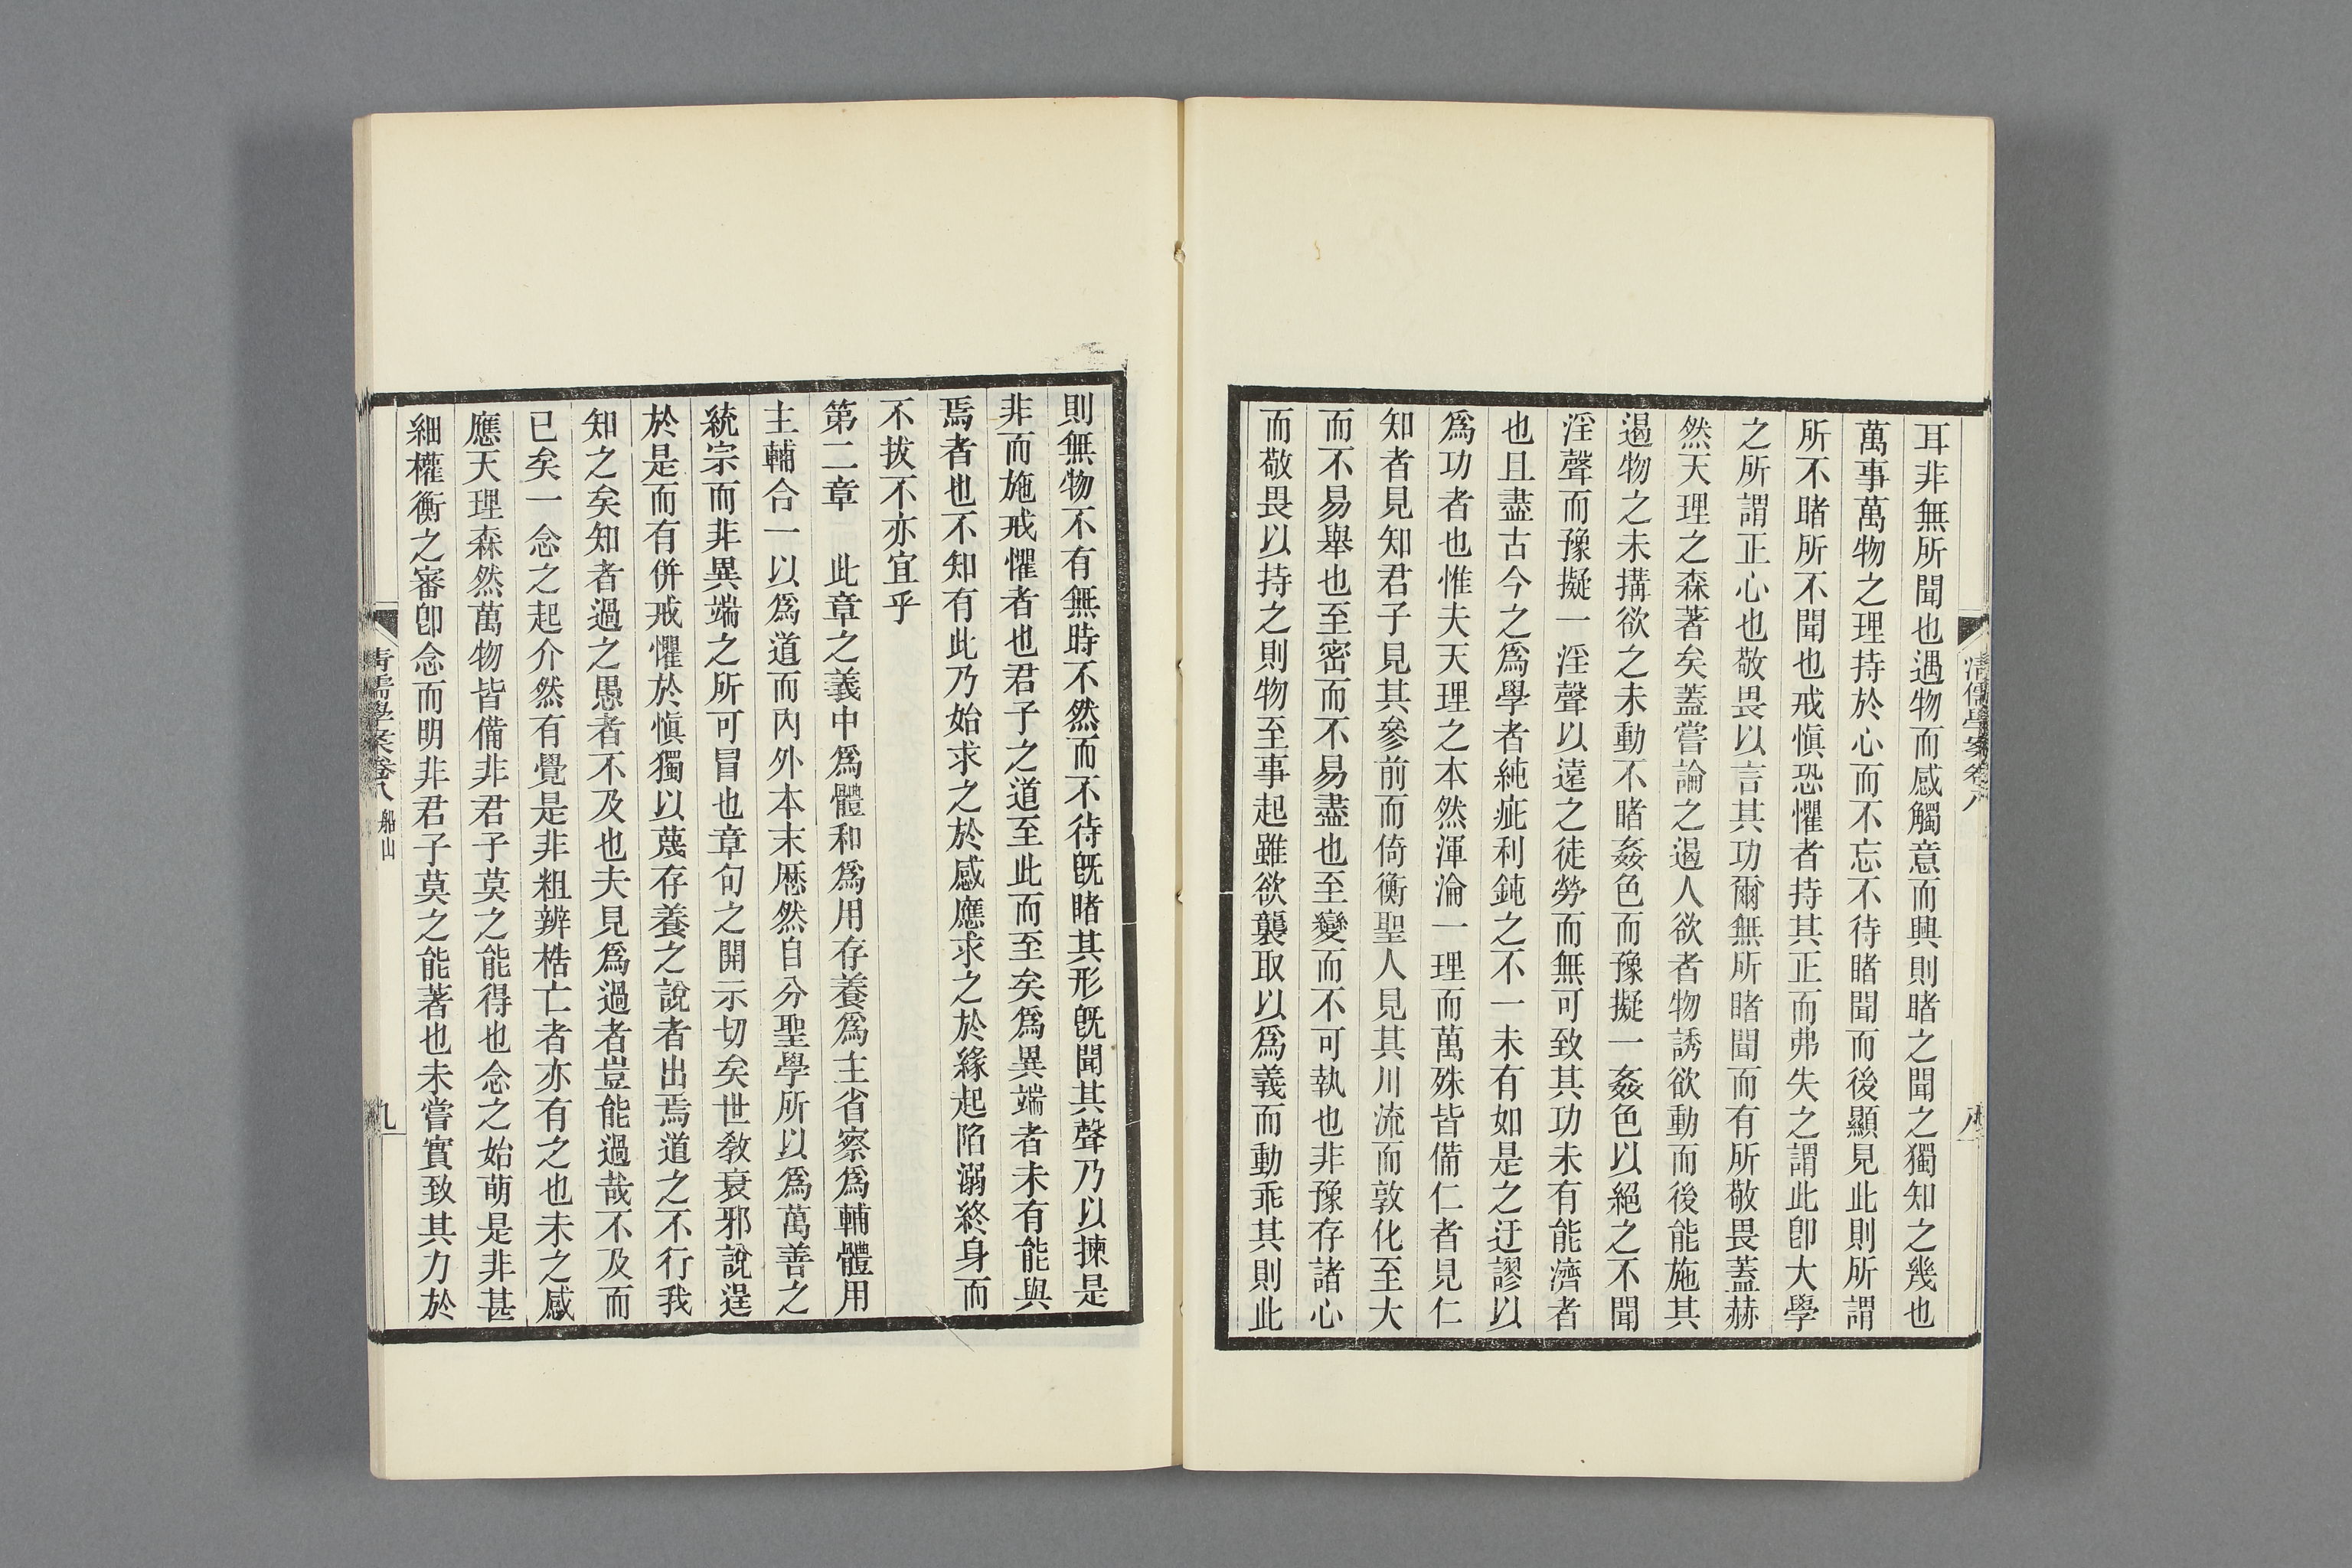 清儒學案卷八
八
耳非無所聞也遇物而感觸意而興則睹之聞之獨知之幾也
萬事萬物之理持於心而不忘不待睹聞而後顯見此則所謂
所不睹所不聞也戒愼恐懼者持其正而弗失之謂此卽大學
之所謂正心也敬畏以言其功爾無所睹聞而有所敬畏蓋赫
然天理之森著矣蓋嘗論之遏人欲者物誘欲動而後能施其
遏物之未搆欲之未動不睹姦色而豫擬一姦色以絕之不聞
淫聲而豫擬一淫聲以遠之徒勞而無可致其功未有能濟者
也且盡古今之爲學者純疵利鈍之不一未有如是之迂謬以
爲功者也惟夫天理之本然渾淪一理而萬殊皆備仁者見仁
知者見知君子見其參前而倚衡聖人見其川流而敦化至大
而不易舉也至密而不易盡也至變而不可執也非豫存諸心
而敬畏以持之則物至事起雖欲襲取以爲義而動乖其則此
則無物不有無時不然而不待旣睹其形旣聞其聲乃以揀是
非而施戒懼者也君子之道至此而至矣爲異端者未有能與
焉者也不知有此乃始求之於感應求之於緣起陷溺終身而
不拔不亦宜乎
第二章　此章之義中爲體和爲用存養爲主省察爲輔體用
主輔合一以爲道而內外本末厯然自分聖學所以爲萬善之
統宗而非異端之所可冒也章句之開示切矣世敎衰邪說逞
於是而有併戒懼於愼獨以蔑存養之說者出焉道之不行我
知之矣知者過之愚者不及也夫見爲過者豈能過哉不及而
已矣一念之起介然有覺是非粗辨梏亡者亦有之也未之感
應天理森然萬物皆備非君子莫之能得也念之始萌是非甚
細權衡之審卽念而明非君子莫之能著也未嘗實致其力於
清儒學案卷八　船山
九